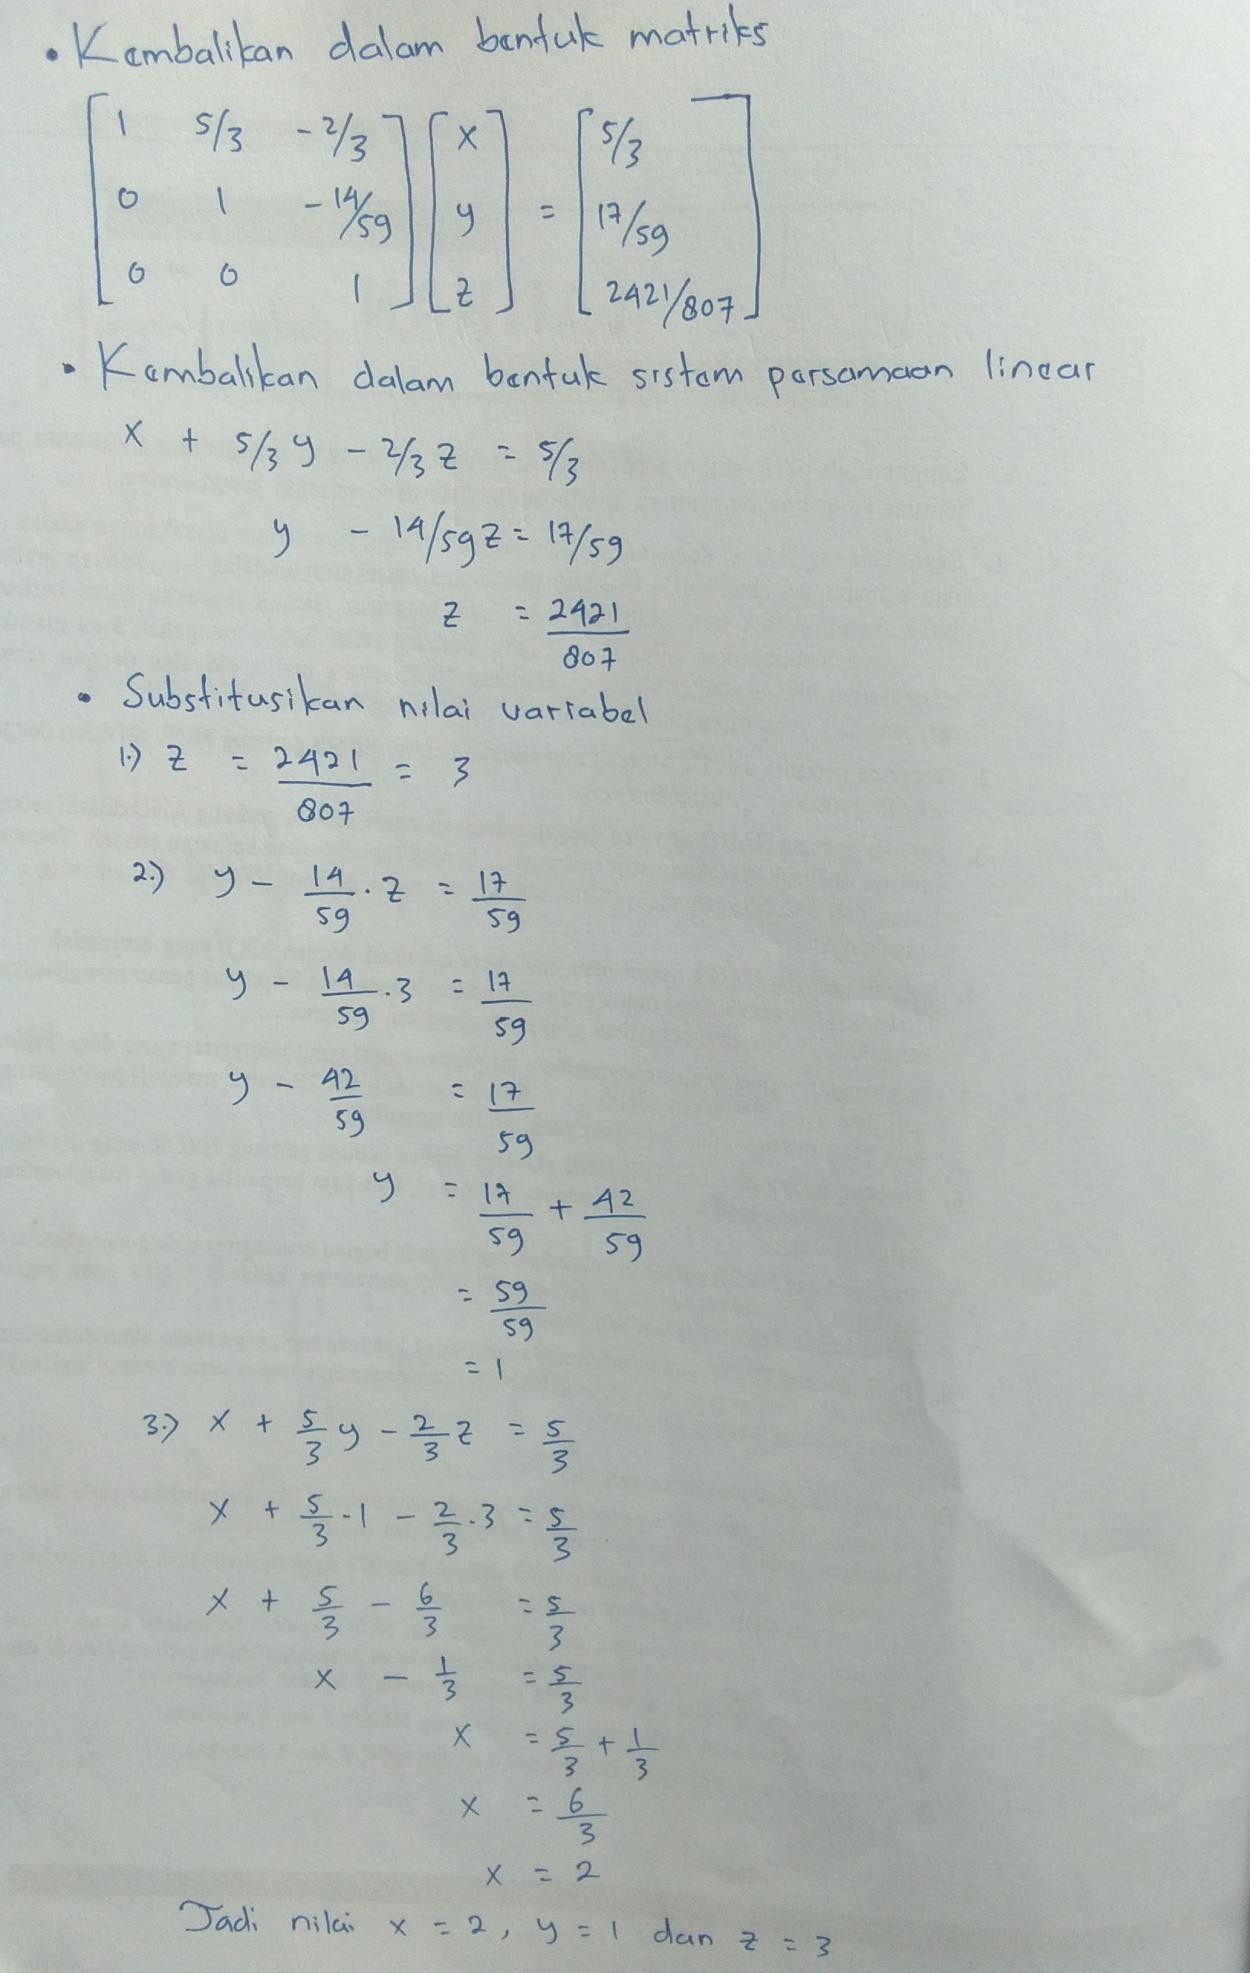 • Kembalikan dalam bentuk matriks
[1 5/3 -2/3] [x] = [5/3]
[0 1 -14/59] [y] = [17/59]
[0 0 1] [z] = [2421/807]
• Kembalikan dalam bentuk sistem persamaan linear
x + 5/3 y - 2/3 z = 5/3
y - 14/59 z = 17/59
z = 2421/807
• Substitusikan nilai variabel
1.) z = 2421/807 = 3
2.) y - 14/59 . z = 17/59
y - 14/59 . 3 = 17/59
y - 42/59 = 17/59
y = 17/59 + 42/59
= 59/59
= 1
3.) x + 5/3 y - 2/3 z = 5/3
x + 5/3 . 1 - 2/3 . 3 = 5/3
x + 5/3 - 6/3 = 5/3
x - 1/3 = 5/3
x = 5/3 + 1/3
x = 6/3
x = 2
Jadi nilai x = 2, y = 1 dan z = 3